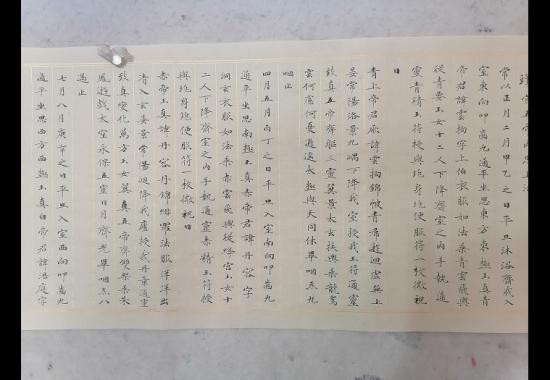 常以正月二月甲乙之日平旦沐浴齋戒入
室東向叩齒九通平坐思東方東極玉真青
帝君諱雲拘字上伯衣服如法乘青雲飛輿
從青要玉女十二人下降齋室之內手執通
靈青精玉符授與兆身兆便服符一枚微祝
曰
青上帝君厥諱雲拘錦帔青裙遊迴虛無上
晏常陽洛景九嵎下降我室授我玉符通靈
致真五帝齊軀三靈翼景太玄扶輿乘龍駕
雲何慮何憂遨遊太極與天同休畢咽炁九
咽止
四月五月丙丁之日平旦入室南向叩齒九
通平坐思南極玉真赤帝君諱丹容字
洞玄衣服如法乘赤雲飛輿從絳宮玉女十
二人下降齋室之內手執通靈赤精玉符授
與兆身兆便服符一枚微祝曰
赤帝玉真諱丹容丹錦緋羅法服洋洋出
清入玄晏景常陽迴降我廬授我丹章通靈
致真變化萬方玉女翼真五帝齊雙乘朱
鳳遊戲太空永保五靈日月齊光畢咽炁八
過止
七月八月庚辛之日平旦入室西向叩齒九
通平坐思西方西極玉真白帝君諱浩庭字